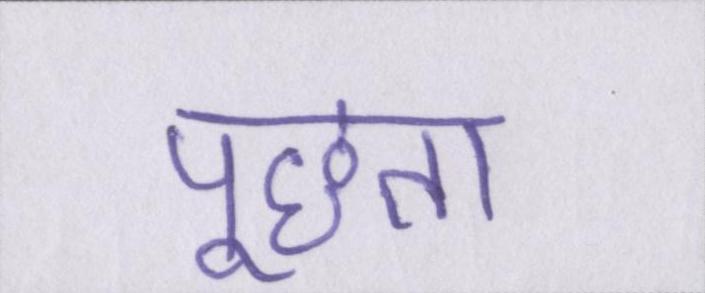 पूछता